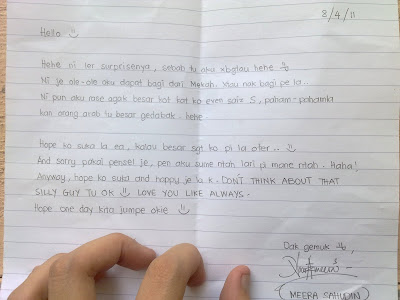 3/4/11
Hello
Hehe ni lor surprisenya, sebab tu aku xbgtau hehe
Ni je ole-ole aku dapat bagi dari Mekah. Xtau nak bagi pe la..
Ni pun aku rase agak besar kot kat ko even saiz S, paham-pahamla
kan orang arab tu besar gedabak. hehe.
Hope ko suka la ea, kalau besar sgt ko pi la alter..
And sorry pakai pensel je, pen aku sume ntah lari pi mane ntah. Haha!
Anyway, hope ko suka and happy je la k. DON'T THINK ABOUT THAT
SILLY GUY TU OK LOVE YOU LIKE ALWAYS.
Hope one day kita jumpe okie
Dak gemuk,
(MEERA SAHUDIN)